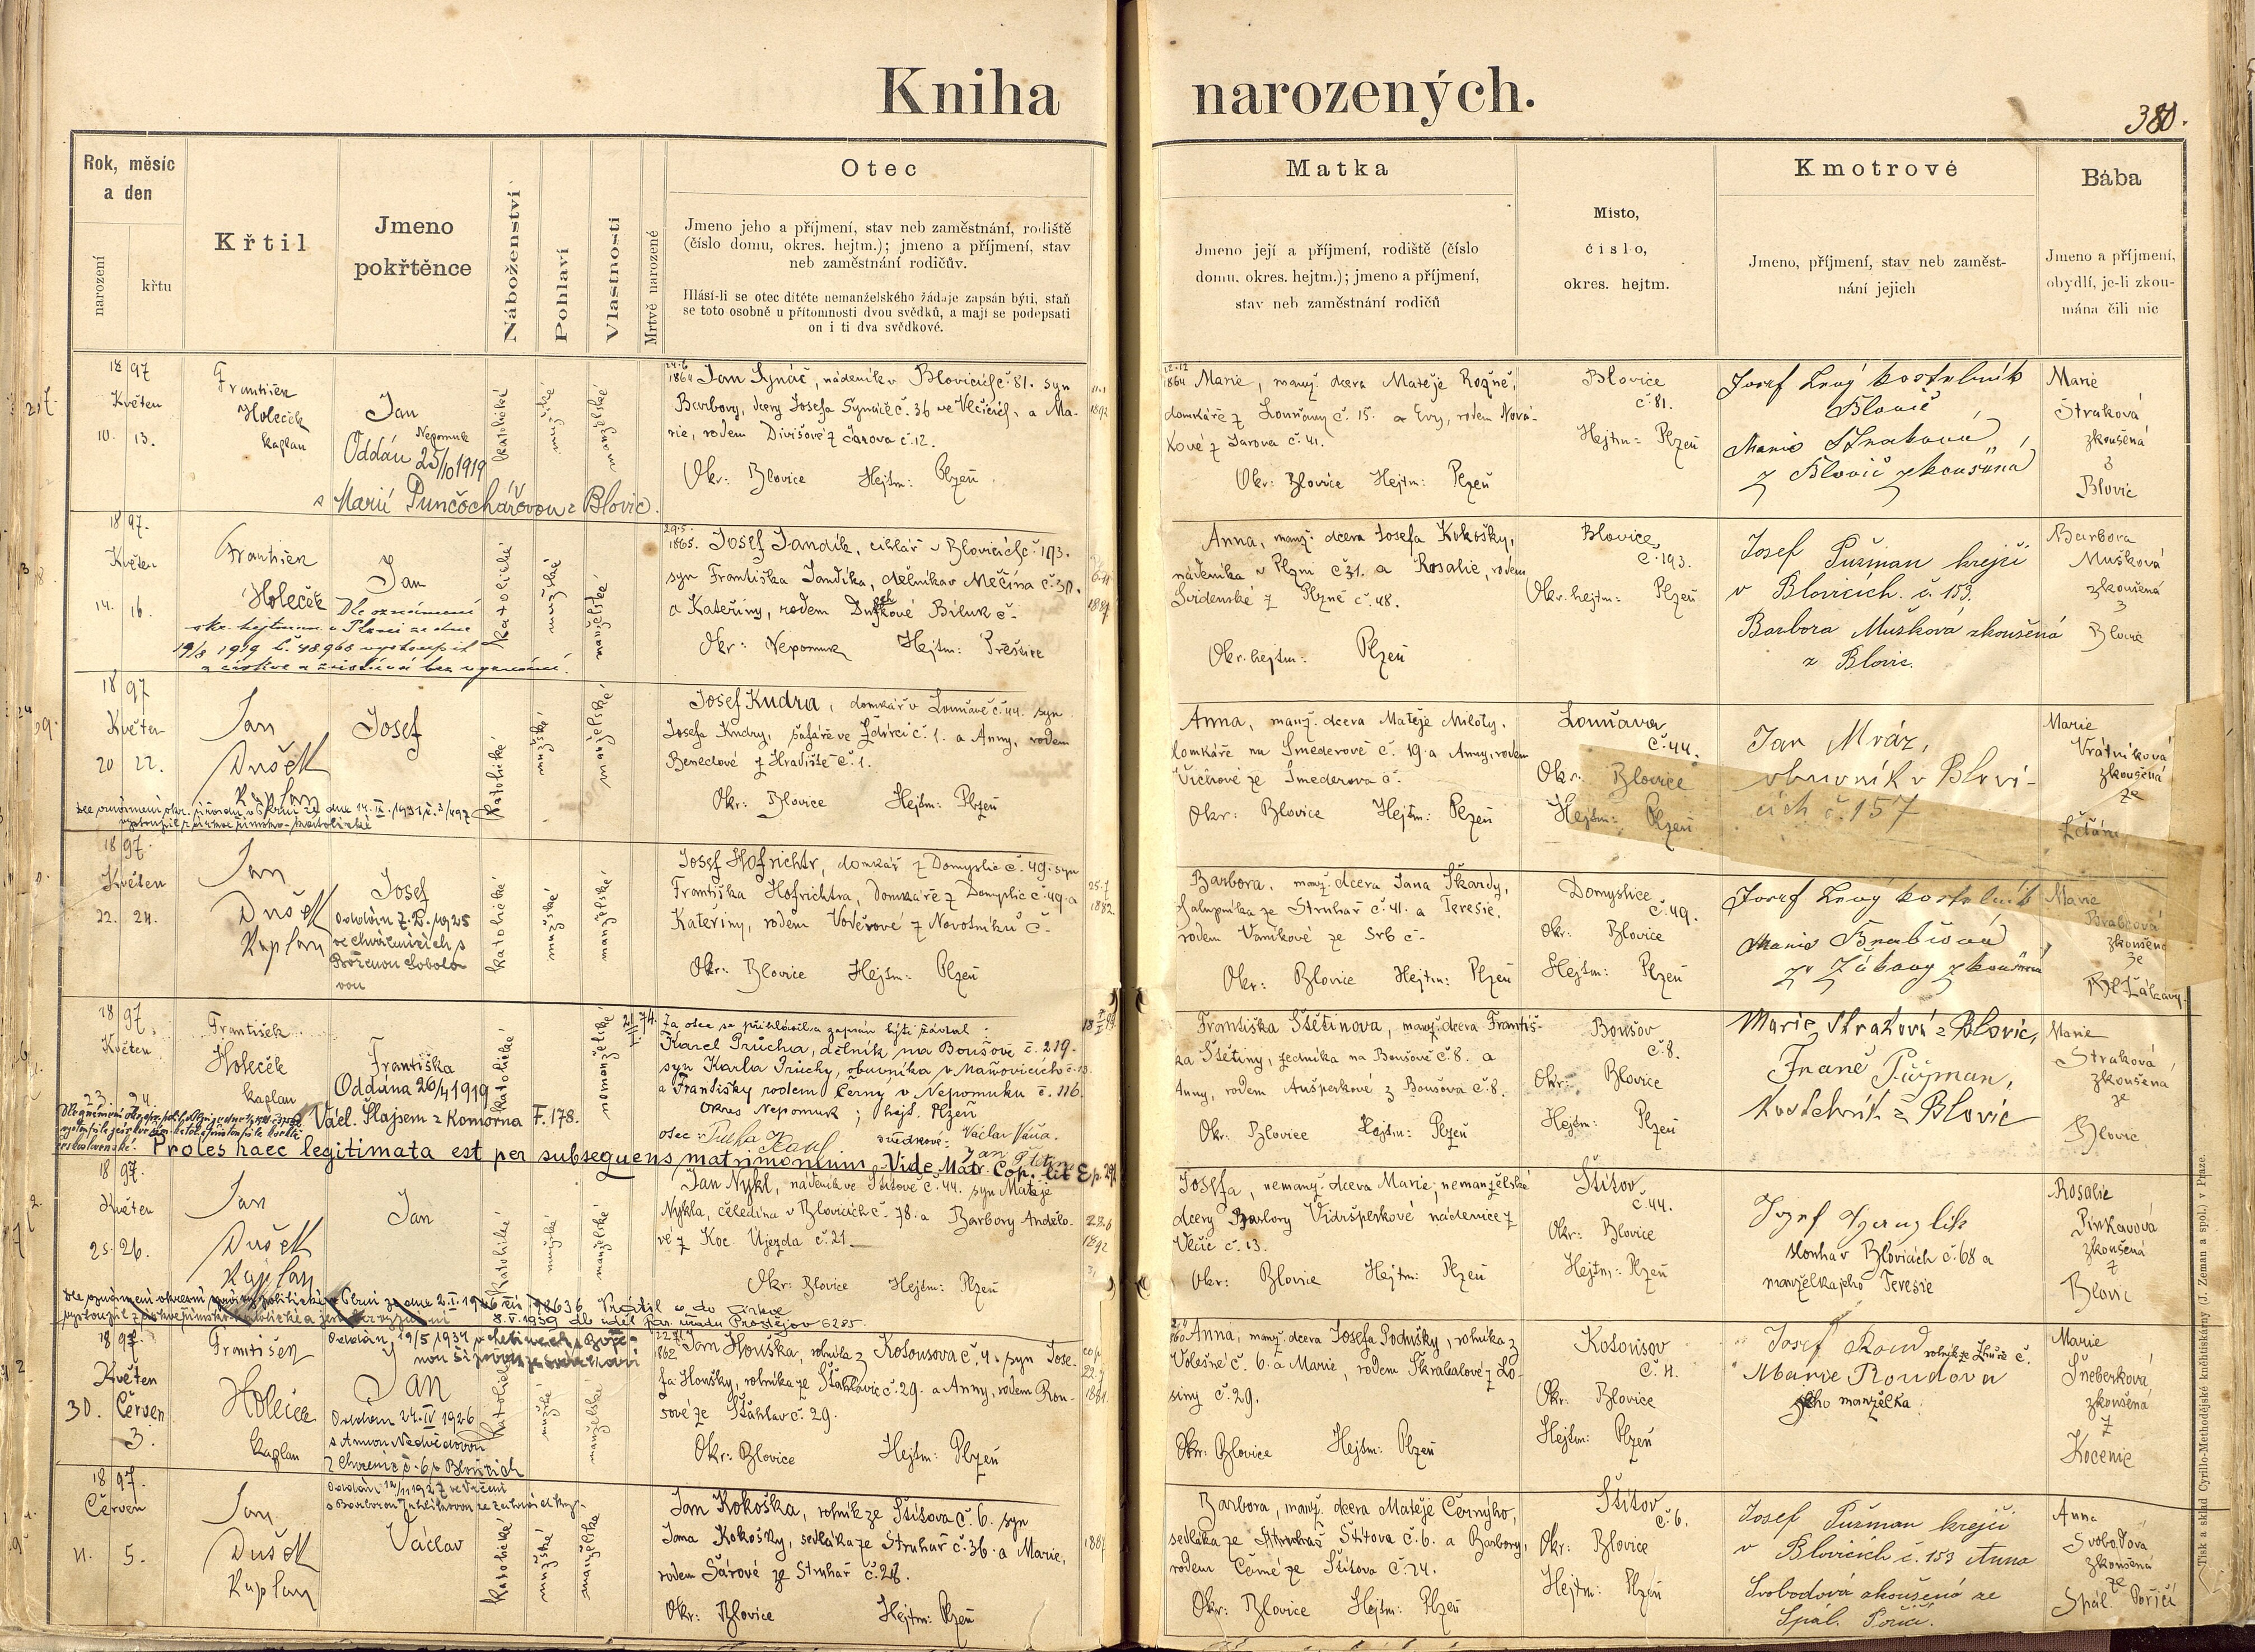 Kniha narozených.
380.
Rok, měsíc a den
narození
křtu
Křtil
Jmeno pokřtěnce
Náboženství
Pohlaví
Vlastnosti
Mrtvě narozené
Otec
Jmeno jeho a příjmení, stav neb zaměstnání, rodiště
(číslo domu, okres. hejtm.); jmeno a příjmení, stav
neb zaměstnání rodičův.
Hlásí-li se otec dítěte nemanželského žádaje zapsán býti, staň
se toto osobně u přítomnosti dvou svědků, a mají se podepsati
on i ti dva svědkové.
Matka
Jmeno její a příjmení, rodiště (číslo
domu, okres. hejtm.); jmeno a příjmení,
stav neb zaměstnání rodičů
Místo,
číslo,
okres. hejtm.
Kmotrové
Jmeno, příjmení, stav neb zaměst-
nání jejich
Bába
Jmeno a příjmení,
obydlí, je-li zkou-
mána čili nic
1897
Květen
10. 13.
František
Holeček
kaplan
Jan
Nepomuk
Oddán 25/10 1919
s Marií Punčochářovou z Blovic.
katolické
mužské
manželské
24.6
1864 Jan Synáč, nádeník v Blovicích č. 81. syn
Barbory, dcery Josefa Synáče č. 36 ve Vlčicích, a Ma-
rie, rodem Divišové z Žarova č. 12.
Okr: Blovice Hejtm: Plzeň
22.12
1864 Marie, manž. dcera Matěje Rožně,
domkáře z Louňavy č. 15. a Evy, rodem Nová-
kové z Žarova č. 41.
Okr: Blovice Hejtm: Plzeň
Blovice
č. 81.
Hejtm: Plzeň
Josef Levý kostelník
Blovic
Marie Straková
z Blovic zkoušená
Marie
Straková
zkoušená
z
Blovic
1897.
Květen
14. 16.
František
Holeček
Jan
Dle oznámení
okr. hejtman. v Plzni ze dne
19/8 1919 č. 48.960 vystoupil
z církve a zůstává bez vyznání.
katolické
mužské
manželské
29.5.
1865. Josef Jandík, cihlář v Blovicích č. 193.
syn Františka Jandíka, dělníka v Mečíně č. 30.
a Kateřiny, rodem Duchkové Biluk č.-
Okr: Nepomuk Hejtm: Přeštice
Anna, manž. dcera Josefa Kokošky,
nádeníka v Plzni č 31. a Rosalie, rodem
Svidenské z Plzně č. 48.
Okr. hejtm: Plzeň
Blovice,
č. 193.
Okr. hejtm: Plzeň
Josef Pužman krejčí
v Blovicích. č. 153.
Barbora Mušková zkoušená
z Blovic.
Barbora
Mušková
zkoušená
z
Blovic
1897
Květen
20 22.
Jan
Dušek
Kaplan
Josef
katolické
mužské
manželské
Josef Kudra, domkář v Louňavě č. 44. syn
Josefa Kudry, šafáře ve Ždírci č. 1. a Anny, rodem
Beneđové z Hradiště č. 1.
Okr: Blovice Hejtm: Plzeň
Anna, manž. dcera Matěje Miloty,
domkáře na Smederově č. 19. a Anny, rodem
Vičírové ze Smederova č.-
Okr: Blovice Hejtm: Plzeň
Louňava
č. 44.
Okr: Blovice
Hejtm: Plzeň
Jan Mráz,
obuvník v Blovi-
cích č. 157
Marie
Vrátníková
zkoušená
ze
1897.
Květen
22. 24.
Jan
Dušek
Kaplan
Josef
Oddán 7.12. 1925
ve Chválenicích s
Boženou Sobolo-
vou
katolické
mužské
manželské
Josef Hofrichtr, domkář z Domyslic č. 49. syn
Františka Hofrichtra, domkáře z Domyslic č. 49. a
Kateřiny, rodem Voděrové z Novotníků č.-
Okr: Blovice Hejtm: Plzeň
25.7
1882.
Barbora, manž. dcera Jana Škardy,
chalupníka ze Struhař č. 41. a Teresie,
rodem Vaníkové ze Srb č.-
Okr: Blovice Hejtm: Plzeň
Domyslice
č. 49.
Okr: Blovice
Hejtm: Plzeň
Josef Levý kostelník
Marie Brabcová
ze Žákavy zkoušená
Marie
Brabcová
zkoušená
ze
Žákavy.
1897.
Květen
23. 24.
František
Holeček
kaplan
Františka
Oddána 26/4 1919
Václ. Šlajsem z Komorna F. 178.
katolické
nemanželské
Za otce se přihlásil a zapsán býti žádal:
Karel Průcha, dělník na Boušově č. 219.
syn Karla Průchy, obuvníka v Maňovicích č. 13.
a Františky rodem Černý v Nepomuku č. 116.
okres Nepomuk; hejt. Plzeň
otec: Průcha Karel svědkové: Václav Váňa.
Proles haec legitimata est per subsequens matrimonium. Vide Matr. Cop. lit E p. 291
Františka Štětinova, manž. dcera Františ-
ka Štětiny, zedníka na Boušově č. 8. a
Anny, rodem Aušperkové z Boušova č. 8.
Okr: Blovice Hejtm: Plzeň
Boušov
č. 8.
Okr: Blovice
Hejtm: Plzeň
Marie Straková z Blovic,
Franc Pužman,
Kostelník z Blovic
Marie
Straková
zkoušená
ze
Blovic
1897.
Květen
25. 26.
Jan
Dušek
Kaplan
Jan
katolické
mužské
manželské
Jan Nykl, nádeník ve Štítově č. 44. syn Matěje
Nykla, čeledína v Blovicích č. 78. a Barbory Anděло-
vé z Koc. Újezda č. 21
Okr: Blovice Hejtm: Plzeň
Vrátil se do církve
8. V. 1939 dle úděl. far. úřadu Prostějov 6285.
Josefa, nemanž. dcera Marie, nemanželské
dcery Barbory Vidršperkové nádenice z
Vlčic č. 13.
Okr: Blovice Hejtm: Plzeň
Štítov
č. 44.
Okr: Blovice
Hejtm: Plzeň
slouha v Blovicích č. 68 a
manželka jeho Teresie
Rosalie
Pinkavová
zkoušená
z
Blovic
1897.
Květen
30. Červen
3.
František
Holeček
kaplan
Jan
Oddán 24. IV 1926
s Annou Nedvědovou
z Chocenic č. 6 v Blovicích
katolické
mužské
manželské
Jan Houška, rolník z Kotousova č. 4. syn Jose-
fa Houšky, rolníka ze Šťáhlavic č. 29. a Anny, rodem Rou-
sové ze Šťáhlav č. 29.
Okr: Blovice Hejtm: Plzeň
Anna, manž. dcera Josefa Podušky, rolníka z
Volešné č. 6. a Marie, rodem Škrabalové z Lo-
siny č. 29.
Okr: Blovice Hejtm: Plzeň
Kotousov
č. 4.
Okr: Blovice
Hejtm: Plzeň
Josef Roud rolník ze Lhůtě č.
Marie Roudova
jeho manželka
Marie
Šneberková
zkoušená
z
Kocenic
1897.
Červen
4. 5.
Jan
Dušek
Kaplan
Václav
katolické
mužské
manželské
Jan Kokoška, rolník ze Štítova č. 6. syn
Jana Kokošky, sedláka ze Struhař č. 36. a Marie,
rodem Šárové ze Struhař č. 28.
Okr: Blovice Hejtm: Plzeň
Barbora, manž. dcera Matěje Černýho,
sedláka ze Štítova č. 6. a Barbory,
rodem Černé ze Štítova č. 24.
Okr: Blovice Hejtm: Plzeň
Štítov
č. 6.
Okr: Blovice
Hejtm: Plzeň
Josef Pužman krejčí
v Blovicích č. 153 Anna
Svobodová zkoušená ze
Spál. Poříčí.
Anna
Svobodová
zkoušená
ze
Spál. Poříčí
Tisk a sklad Cyrillo-Methodějské knihtiskárny (J. Zeman a spol.) v Praze.